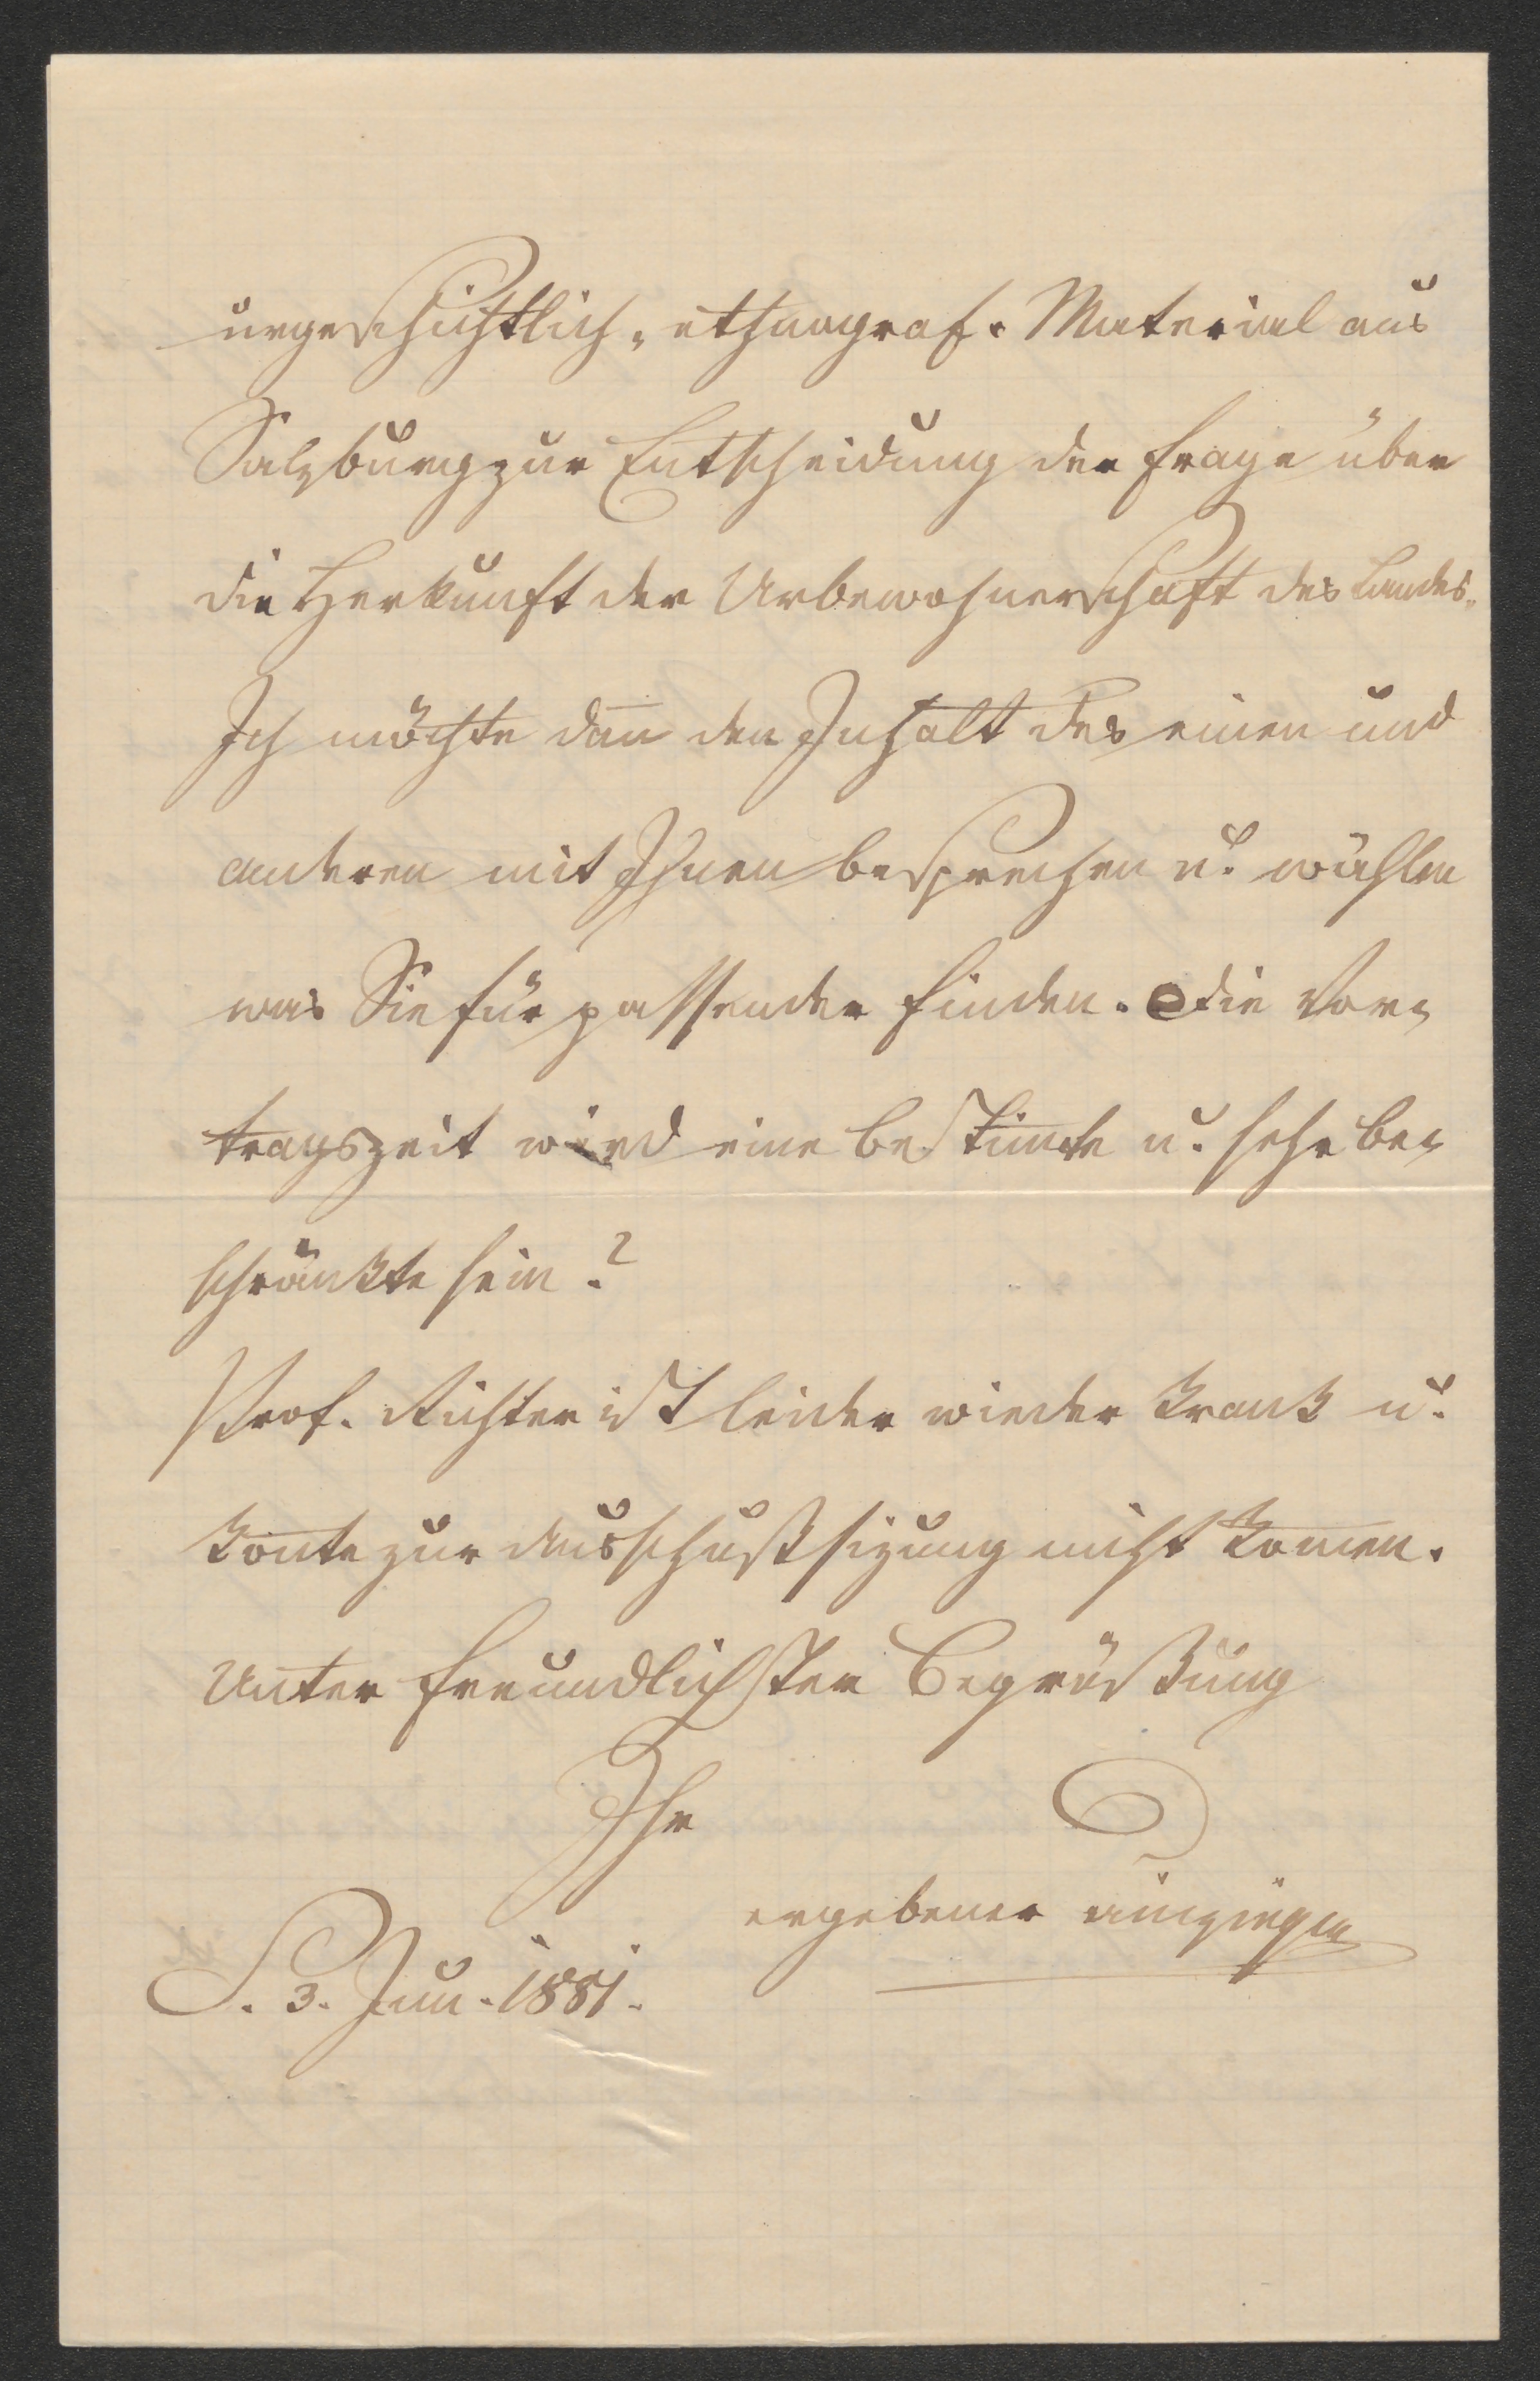 urgeschichtlich-ethnograf. Material aus
Salzburg zur Entscheidung der Frage über
die Herkunft der Urbewohnerschaft des Landes.
Ich möchte dañ den Inhalt des einen und
anderen mit Ihnen besprechen u. wählen
was Sie für passender finden. Die Vor-
tragszeit wird eine bestim̃te u. sehr be-
schränkte sein?
Prof. Richter ist leider wieder krank u.
kon̄te zur Ausschußsizung nicht kom̄en.
Unter freundlichster Begrüßung
Ihr
ergebener
S. 3. Jun. 1881.